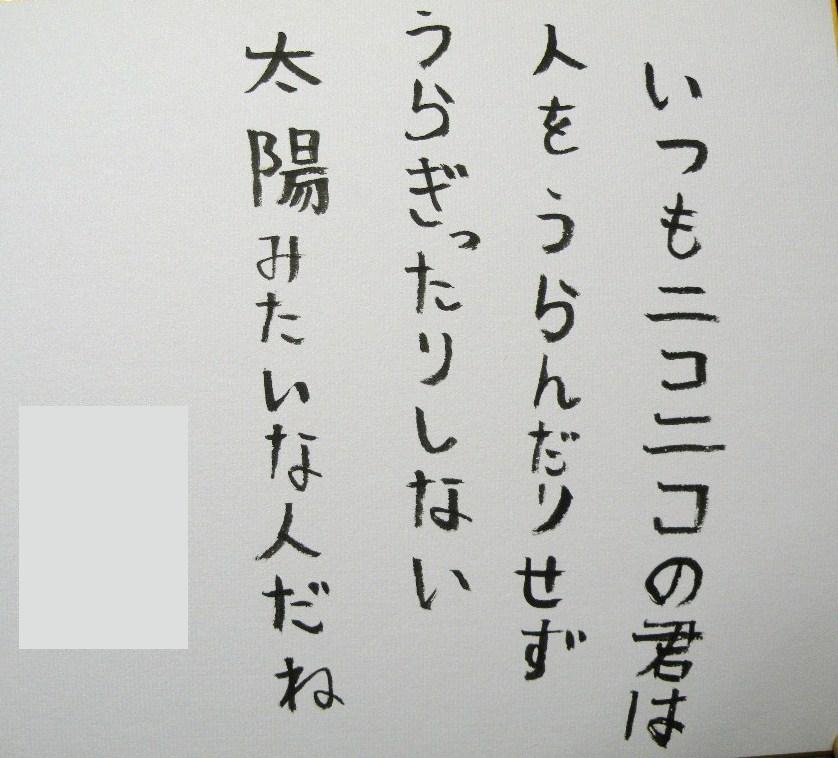 いつもニコニコの君は
人をうらんだりせず
うらぎったりしない
太陽みたいな人だね